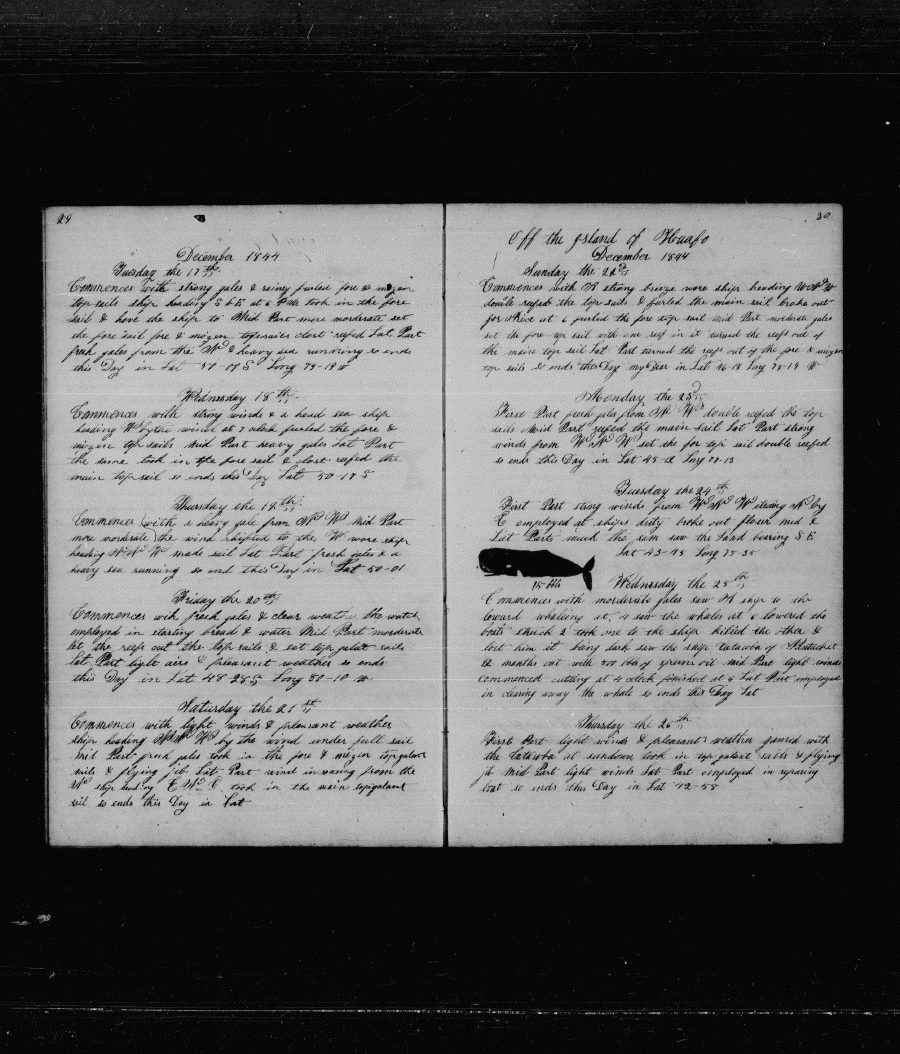 29
December 1844
Tuesday the 17th
Commences with strong gales & rainy furled fore & mizen
top sails ship heading S b E at 6 P M took in the fore
sail & hove the ship to Mid Part more moderate set
the fore sail fore & mizen topsails close reefed Lat Part
fresh gales from the W & heavy sea running so ends
this Day in Lat 51-17 S Long 79-19 W
Wednesday 18th
Commences with strong winds & a head sea ship
heading W by the wind at 7 oclock furled the fore &
mizen top sails Mid Part heavy gales Lat Part
the same took in the fore sail & close reefed the
main top sail so ends this Day Lat 50-17 S
Thursday the 19th
Commences with a heavy gale from N W Mid Part
more morderate the wind shifted to the W wore ship
heading N W made sail Lat Part fresh gales & a
heavy sea running so end this Day in Lat 50-01
Friday the 20th
Commences with fresh gales & clear weath the watch
employed in starting bread & water Mid Part morderate
let the reefs out the top sails & set top galat sails
Lat Part light airs & pleasant weather so ends
this Day in Lat 48-28 S Long 80-10 W
Saturday the 21st
Commences with light winds & pleasant weather
ship heading N N W by the wind under full sail
Mid Part fresh gales took in the fore & mizen topgalant
sails & flying jib Lat Part wind from the
W ship heading took in the main topgalant
sail so ends this Day in Lat
30
Off the Island of Huafo
December 1844
Sunday the 22
Commences with A strong breeze wore ship heading
double reefed the top sails & furled the main sail broke out
for at 6 furled the fore top sail Mid Part morderate gales
set the fore top sail with one reef in it turned the reefs out of
the main top sail Lat Part turned the reefs out of the fore & mizen
top sails so ends this Day my Dear in Lat 46-18 Long 78-19 W
Monday the 23
First Part fresh gales from N W double reefed the top
sails Mid Part reefed the main sail Lat Part strong
winds from W N W set the for top sail double reefed
so ends this Day in Lat 45-12 Long 77-13
Tuesday the 24th
First Part strng winds from W N W stearing N by
E employed at ships duty broke out flour Mid &
Lat Parts much the sam saw the Land bearing S E
Lat 43-45 Long 75-35
15 bbls
Wednesday the 25th
Commences with morderate gales saw A ship to the
leward whaleing at 4 saw the whales at 6 lowered the
boats struck 2 took one to the ship killed the other &
lost him it being dark saw the ship Catawba of Nantucket
12 months out with 400 bbls of sperm oil mid Part light winds
commenced cutting at 4 oclock finished at 6 Lat Part employed
in clearing away the whale so ends this Day Lat
Thursday the 26th
First Part light winds & pleasant weather gamed with
the Catawba at sundown took in top galant sails & flying
jib Mid Part light winds Lat Part employed in repairing
boat so ends this Day in Lat 42-55